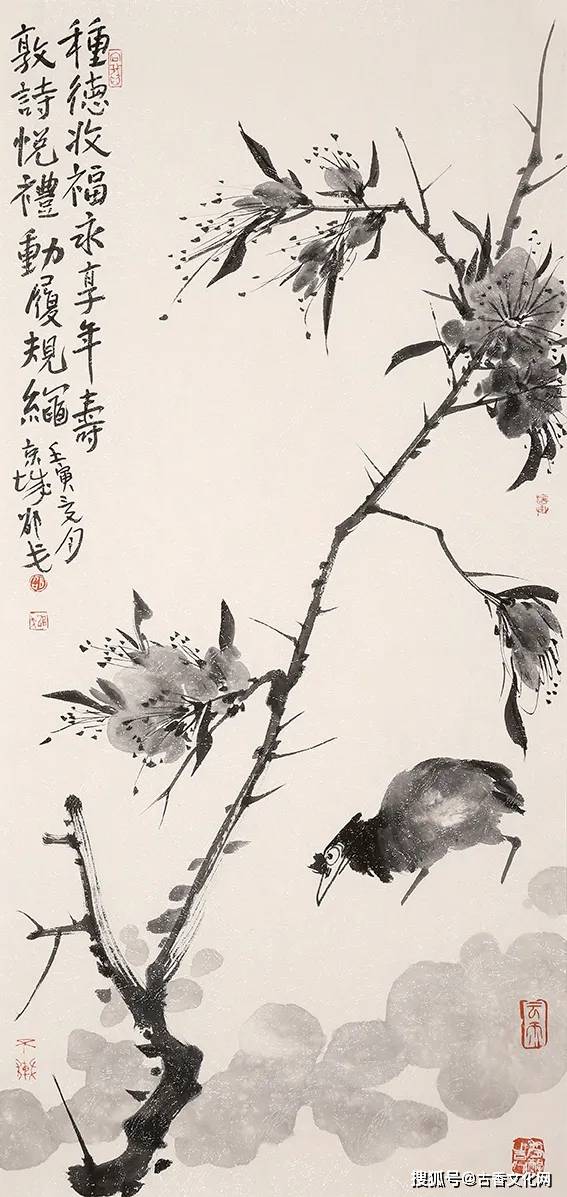 種德收福永享年壽
敦詩悅禮動履規繩
壬寅
京城
搜狐号@古香文化网